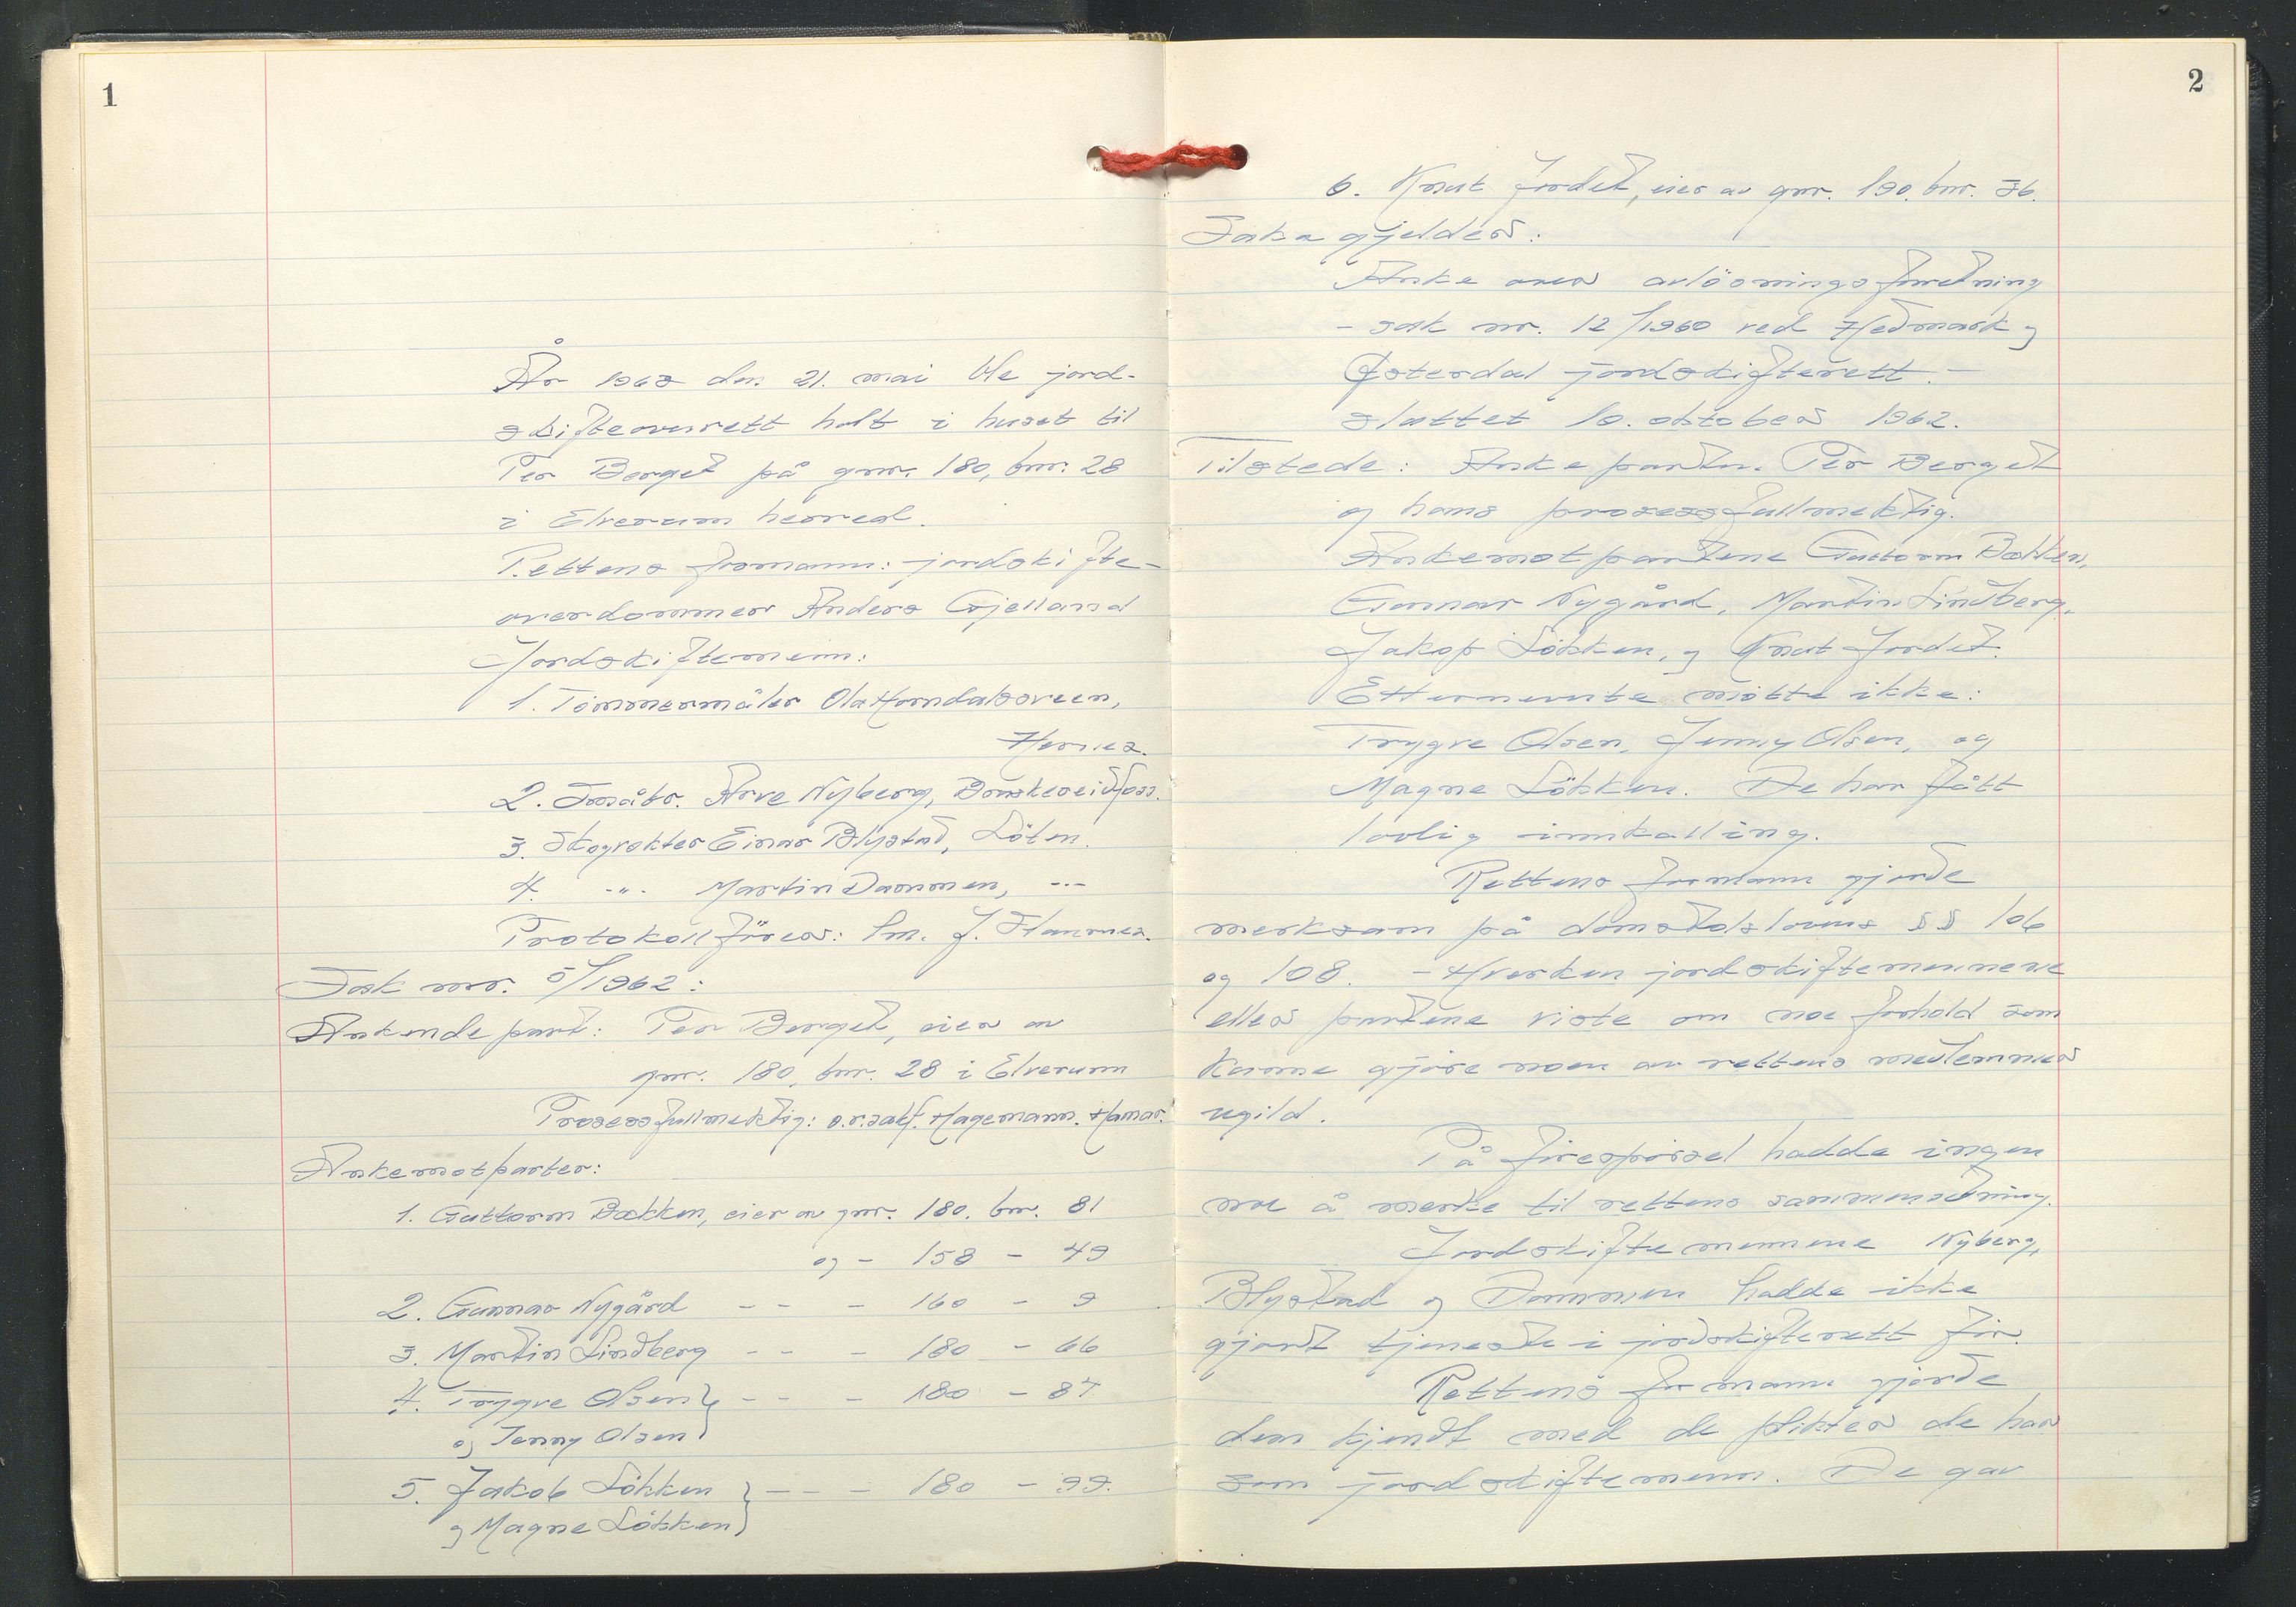 1
År 1963 den 21. mai ble jord-
skifteoverrett holt i huset til
Per Berget på gnr. 180, bnr. 28
i Elverum herred.
Rettens formann: jordskifte-
overdommer Anders Gjelland
Jordskiftemenn:
1. Tømmermåler Ola Horndalsveen,
Hernes.
2. Småbr. Arve Nyberg, Braskereidfoss.
3. Skogvokter Einar Blystad, Löten.
4. -"- Martin Dammen, -"-
Protokollförer: lm. J. Flamnes.
Sak nr. 5/1962:
Ankende part: Per Berget, eier av
gnr. 180, bnr. 28 i Elverum
Prosessfullmektig: o.r.sakf. Hagemann. Hamar.
Ankemotparter:
1. Guttorm Bakken, eier av gnr. 180. bnr. 81
og - 158 - 49
2. Gunnar Nygård - - - 160 - 9
3. Martin Lindberg - - - 180 - 66
4. Trygve Olsen - - - 180 - 87
og Jenny Olsen
5. Jakob Lökken - - - 180 - 99.
og Magne Lökken
2
6. Knut Jordet, eier av gnr. 180. bnr. 36.
Saka gjelder:
Anke over avlösningsforretning
- sak nr. 12/1960 ved Hedmark og
Østerdal jordskifterett. -
sluttet 10. oktober 1962.
Tilstede: Ankeparten. Per Berget
og hans prosessfullmektig.
Ankemotpartene Guttorm Bakken,
Gunnar Nygård, Martin Lindberg,
Jakop Lökken, og Knut Jordet.
Etternemnte mötte ikke:
Trygve Olsen, Jenny Olsen, og
Magne Lökken. De har fått
lovlig innkalling.
Rettens formann gjorde
merksam på domstolslovens §§ 106
og 108. - Hverken jordskiftemennene
eller partene viste om noe forhold som
kunne gjöre noen av rettens medlemmer
ugild.
På forespörsel hadde ingen
noe å merke til rettens sammensetning.
Jordskiftemennene Nyberg,
Blystad og Dammen hadde ikke
gjort tjeneste i jordskifterett för.
Rettens formann gjorde
dem kjendt med de plikter de har
som jordskiftemenn. De gav